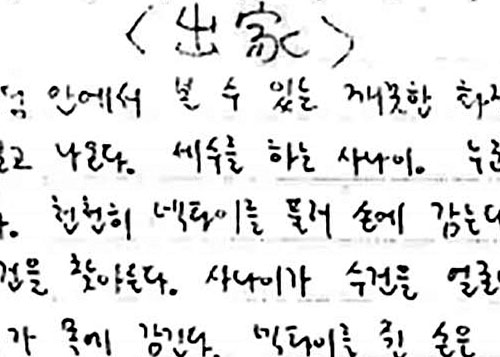 <出家>
안에서 볼 수 있는 깨끗한
나온다. 세수를 하는 사나이.
천천히 넥타이를 풀러 손에 감는다
찾아든다. 사나이가 수건을
가 목에 감긴다. 넥타이를 쥔 손은